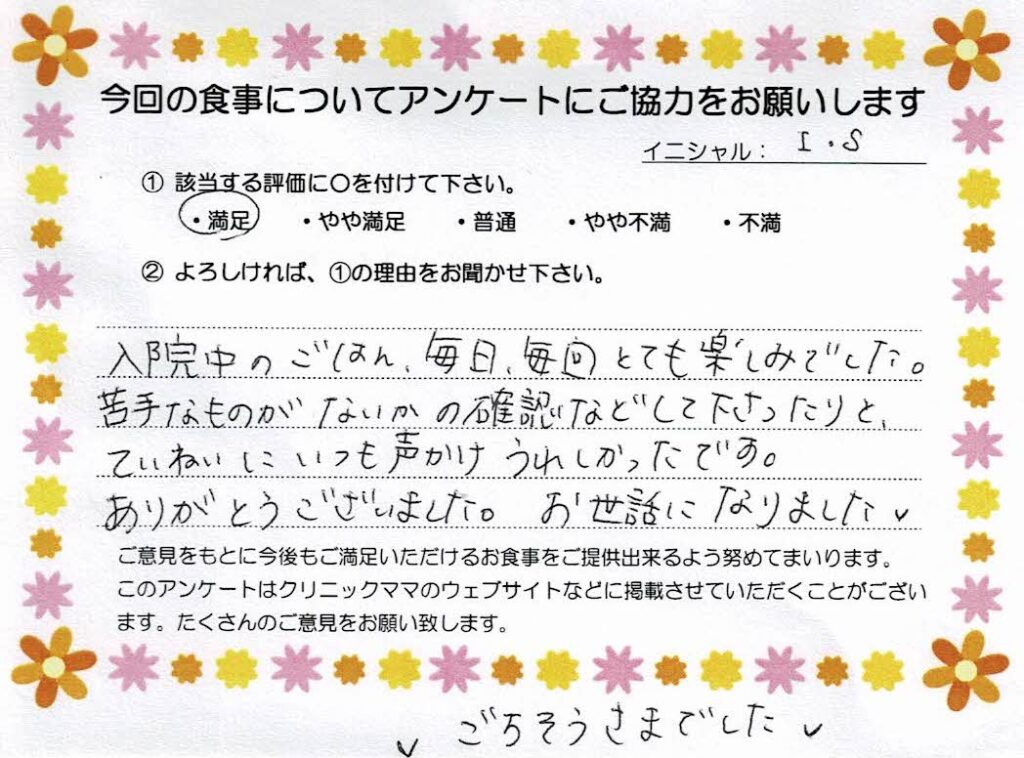 今回の食事についてアンケートにご協力をお願いします
イニシャル： I・S
① 該当する評価に〇を付けて下さい。
・満足 ・やや満足 ・普通 ・やや不満 ・不満
② よろしければ、①の理由をお聞かせ下さい。
入院中のごはん、毎日、毎回とても楽しみでした。
苦手なものがないかの確認などして下さったりと、
ていねいにいつも声かけうれしかったです。
ありがとうございました。 お世話になりました
ご意見をもとに今後もご満足いただけるお食事をご提供出来るよう努めてまいります。
このアンケートはクリニックママのウェブサイトなどに掲載させていただくことがござい
ます。たくさんのご意見をお願い致します。
ごちそうさまでした